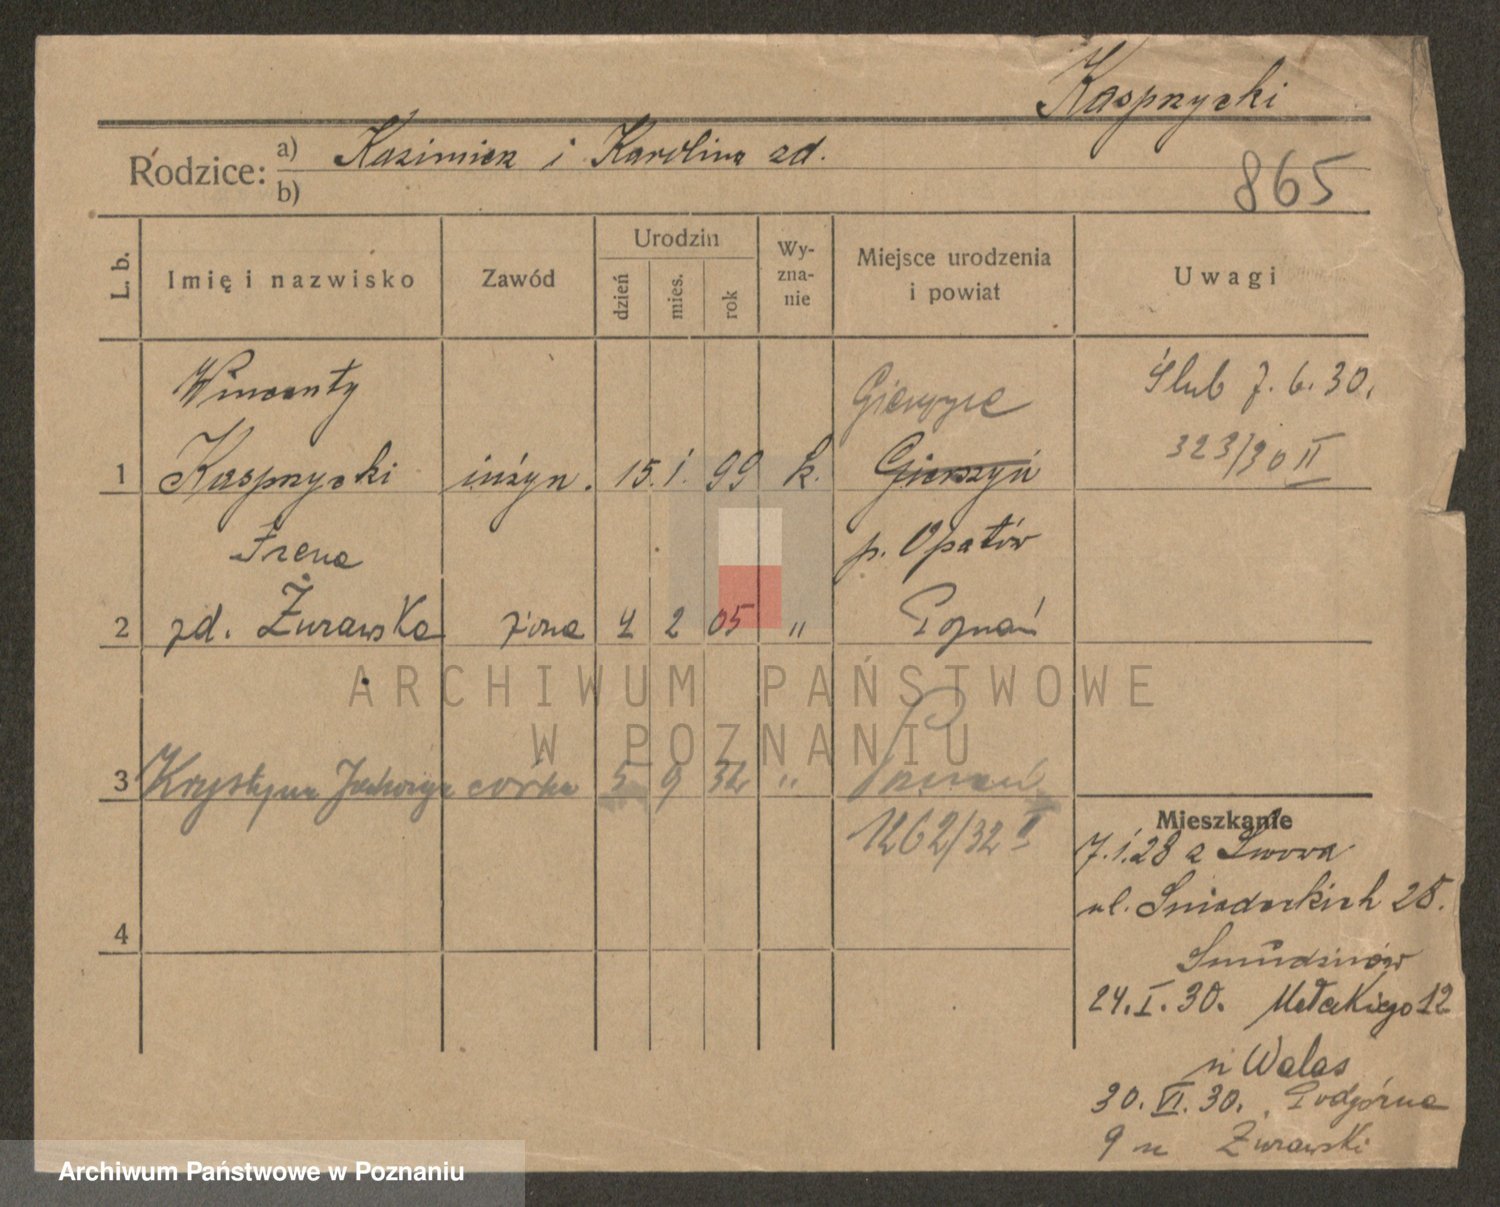 Kasprzycki
Rodzice: a) Kazimierz i Karolina zd.
b)
865
L. b. Imię i nazwisko Zawód Urodzin dzień mies. rok Wy-zna-nie Miejsce urodzenia i powiat Uwagi
Wincenty
Ślub 7.6.30.
1 Kasprzycki inżyn. 15. 1. 99 k. Gierszyń
323/30 II
Irena p. Opatów
2 zd. Żurawska żona 4 2 05 " Poznań
ARCHIWUM PAŃSTWOWE
W POZNANIU
3 Krystyna Jadwiga córka 5 9 32 " Poznań
1262/32 II
4
Mieszkanie
7.1.28 z Lwowa
ul. Śniadeckich 28.
24.I.30. Małeckiego 12
u Walas
30.VI.30. Podgórna
9 u Żurawski
Archiwum Państwowe w Poznaniu